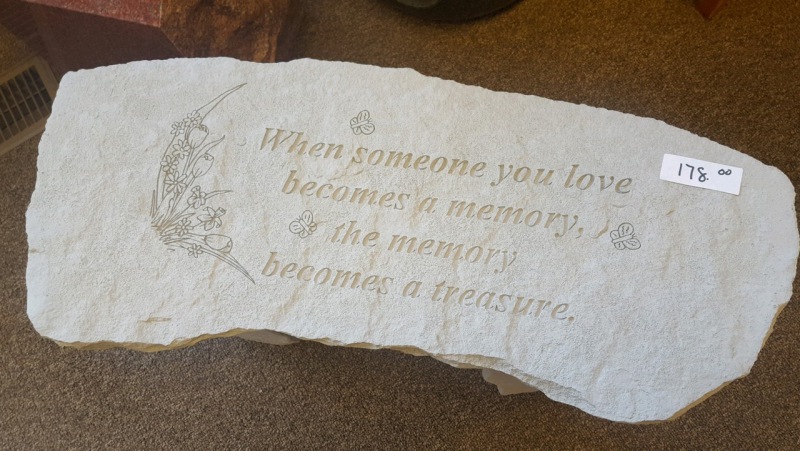 When someone you love
becomes a memory,
the memory
becomes a treasure.
178.00